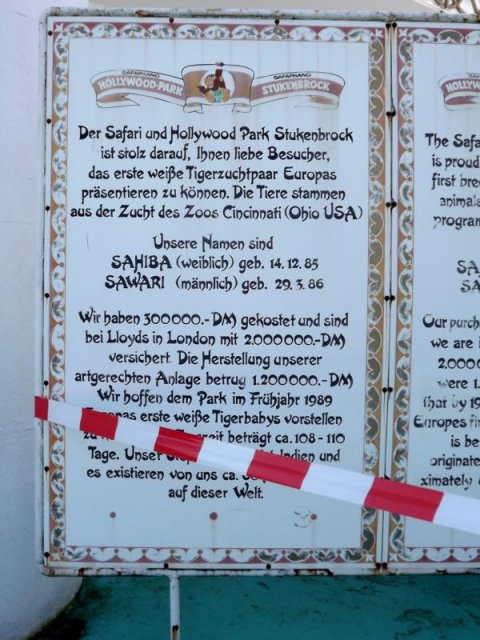 SAFARILAND SAFARILAND
HOLLYWOOD-PARK STUKENBROCK
Der Safari und Hollywood Park Stukenbrock
ist stolz darauf, Ihnen liebe Besucher,
das erste weiße Tigerzuchtpaar Europas
präsentieren zu können. Die Tiere stammen
aus der Zucht des Zoos Cincinnati (Ohio USA)
Unsere Namen sind
SAHIBA (weiblich) geb. 14.12.85
SAWARI (männlich) geb. 29.3.86
Wir haben 300000.-DM gekostet und sind
bei Lloyds in London mit 2.000000.-DM
versichert. Die Herstellung unserer
artgerechten Anlage betrug 1.200000.-DM
Wir hoffen dem Park im Frühjahr 1989
erste weiße Tigerbabys vorstellen
beträgt ca. 108-110
Tage. Indien und
es existieren von uns ca.
auf dieser Welt.
HOLLYW
The Safa
is proud
first bree
animals
program
SA
SA
Our purch
we are i
2.000
were 1.
that by 19
Europes fi
is be
originate
ximately